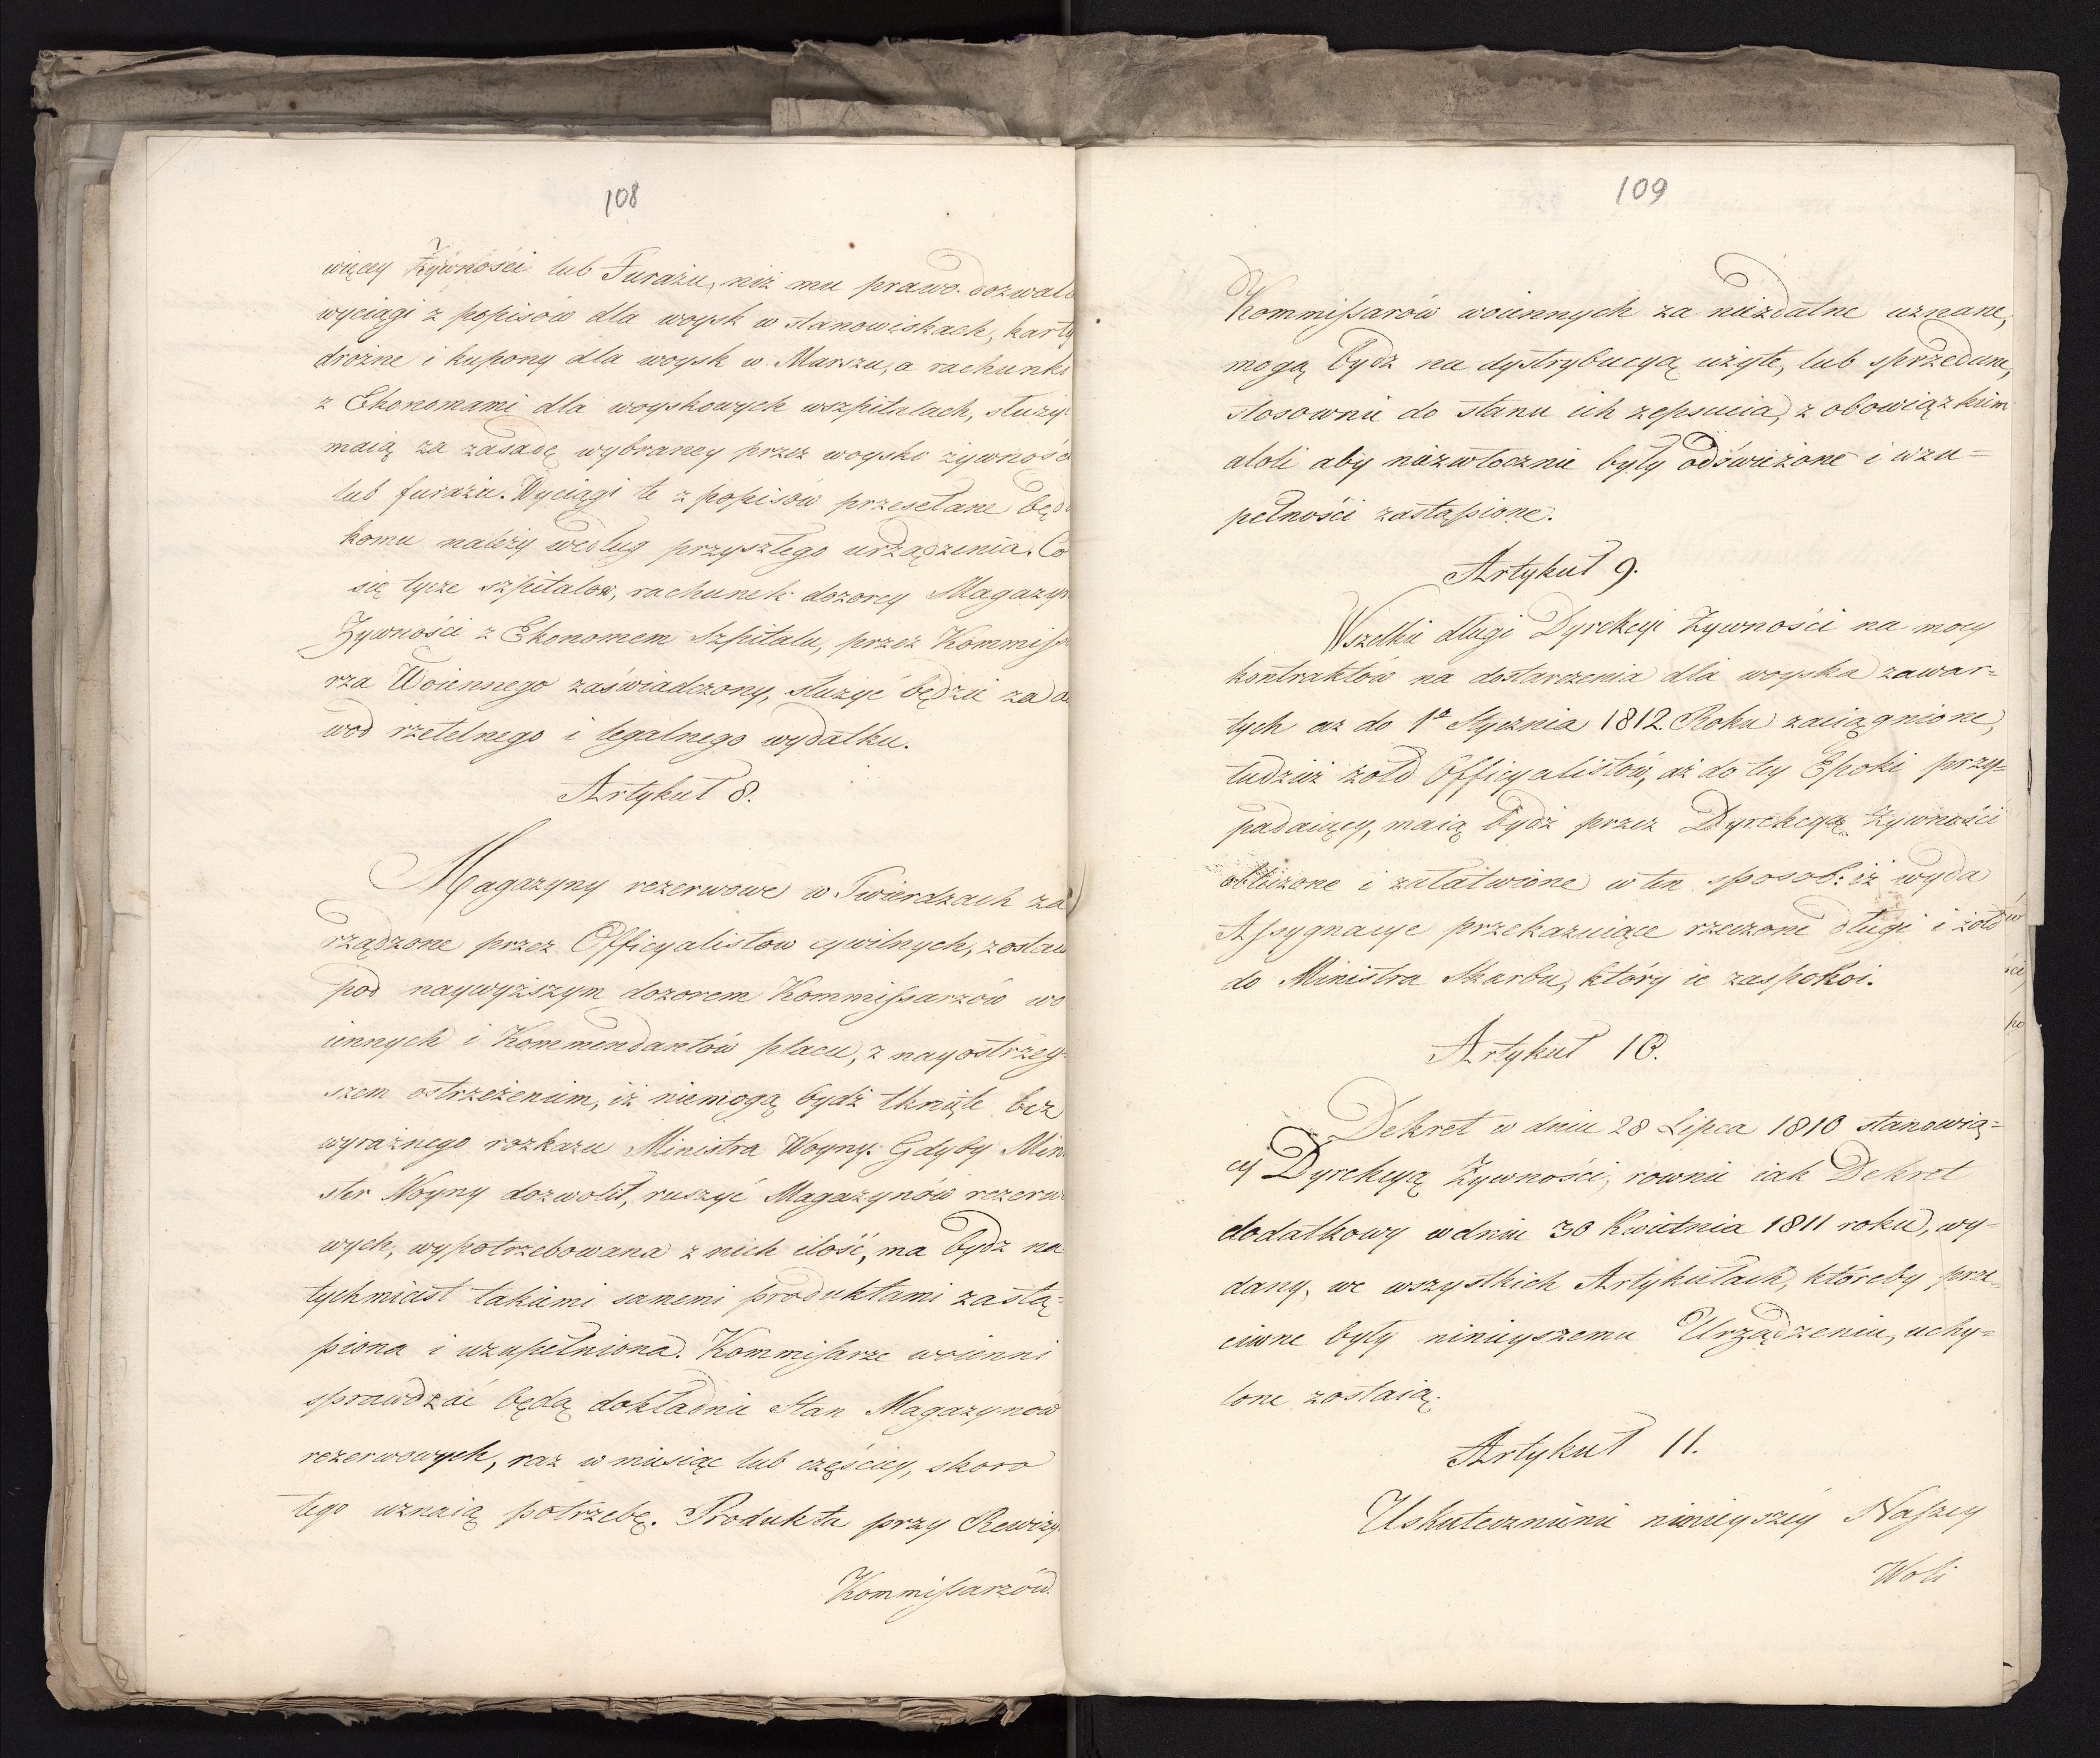 108
więcey Żywności lub Furażu, niż mu prawo dozwala
wyciągi z popisów dla woysk w stanowiskach, karty
drożne i kupony dla woysk w Marszu, a rachunki
z Ekonomami dla woyskowych wszpitalach, służyć
maią za zasadę wybraney przez woysko żywności
lub furażu. Wyciągi te z popisów przesełane będą
komu należy według przyszłego urządzenia. Co
się tycze szpitalow, rachunek dozorcy Magazyn
Żywności z Ekonomem Szpitalu, przez Kommissa
rza Woiennego zaświadczony, służyć będzie za do
wod rzetelnego i legalnego wydatku.
Artykuł 8.
Magazyny rezerwowe w Twierdzach za
rządzone przez Officyalistow cywilnych, zostaią
pod naywyższym dozorem Kommissarzów wo
iennych i Kommendantów placu, z nayostrzey
szem ostrzeżeniem, iż niemogą bydź tknięte bez
wyraźnego rozkazu Ministra Woyny. Gdyby Mini
ster Woyny dozwolił, ruszyć Magazynów rezerwo
wych, wypotrzebowana z nich ilość, ma bydz na
tychmiast takiemi samemi produktami zastą=
piona i uzupełniona. Kommissarze woienni
sprawdzać będą dokładnie Stan Magazynów
rezerwowych, raz w miesiąc lub częściey, skoro
tego uznaią potrzebę. Produkta przy Rewizyi
Kommissarzów
109
Kommissarów woiennych za niezdatne uznane,
mogą bydz na dystrybucyą użyte, lub sprzedane,
stosownie do stanu ich zepsucia, z obowiązkiem
atoli aby niezwłocznie były odświeżone i wzu=
pełności zastąpione.
Artykuł 9.
Wszelkie długi Dyrekcyi Żywności na mocy
kontraktów na dostarczenia dla woyska zawar=
tych aż do 1o Stycznia 1812. Roku zaciągnione,
tudzież żołd Officyalistów, aż do tey Epoki przy=
padaiący, maią bydź przez Dyrekcyą Żywności
obliczone i załatwione w ten sposob: iż wyda
Assygnacye przekazuiące rzeczone długi i żołd
do Ministra Skarbu, który ie zaspokoi.
Artykuł 10.
Dekret w dniu 28 Lipca 1810 stanowią=
cy Dyrekcyą Żywności, rownie iak Dekret
dodatkowy w dniu 30 Kwietnia 1811 roku, wy=
dany, we wszystkich Artykułach, któreby prze=
ciwne były ninieyszemu Urządzeniu, uchy=
lone zostaią.
Artykuł 11.
Uskutecznienie ninieyszéy Naszey
Woli